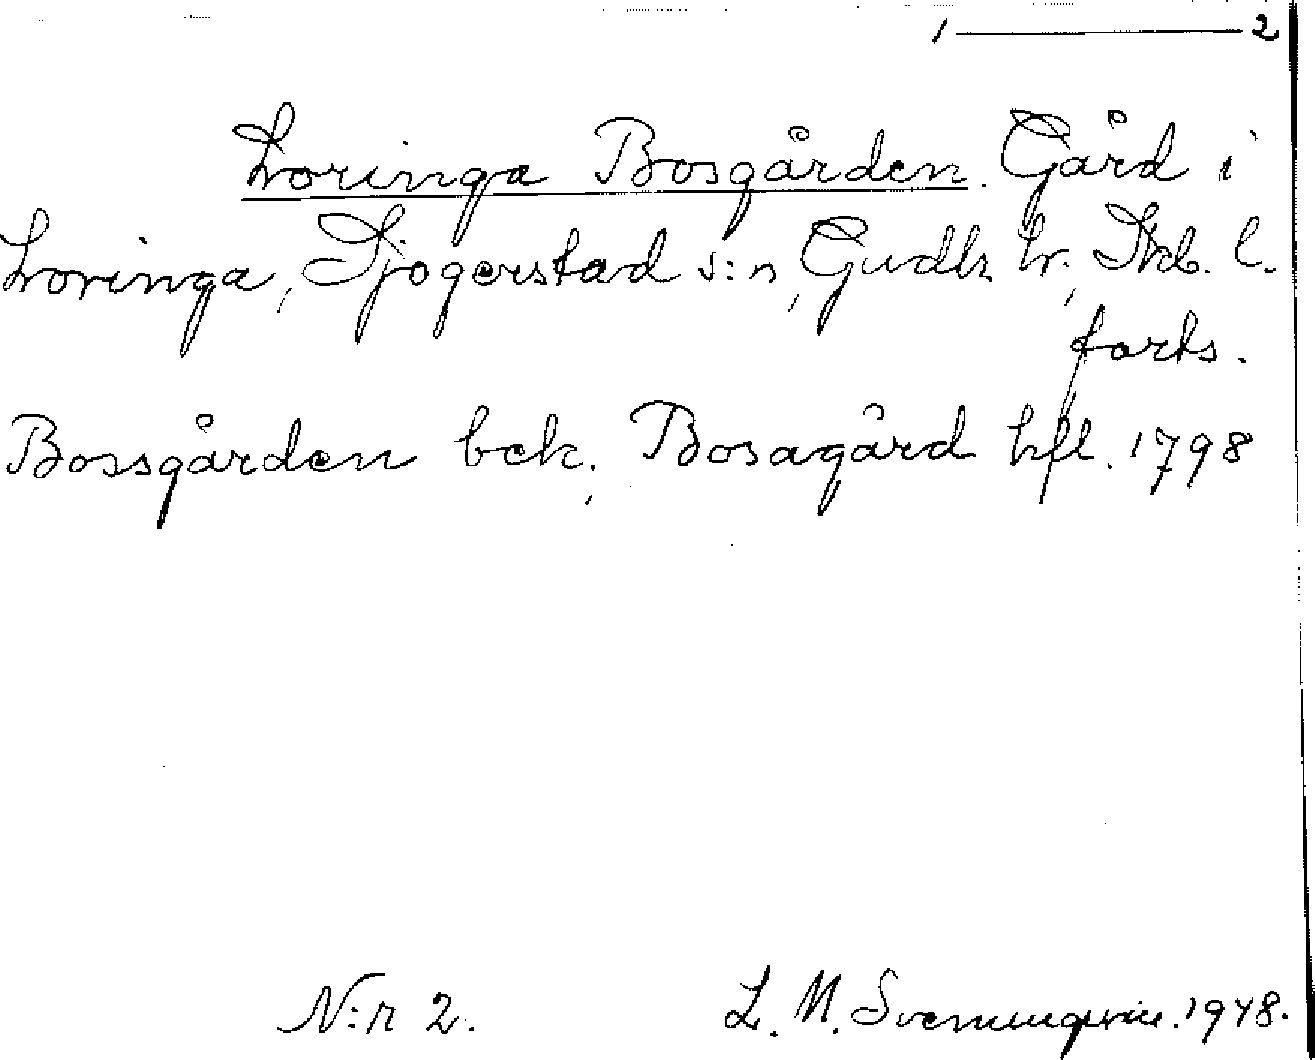 1 — 2
Loringa Bosgården. Gård i
Loringa, Sjogerstad s:n, Gudh. hr., Skb. l.
forts.
Bossgården bek., Bosagård hfl. 1798
N:r 2. L. M. Svenungsson. 1948.